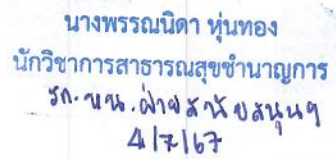 นางพรรณนิดา หุ่นทอง
นักวิชาการสาธารณสุขชำนาญการ
รก.หน.ฝ่ายสนับสนุนฯ
4/7/67